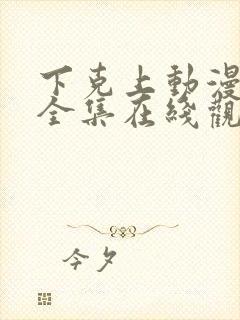 下克上動漫
全集在綫觀
今夕